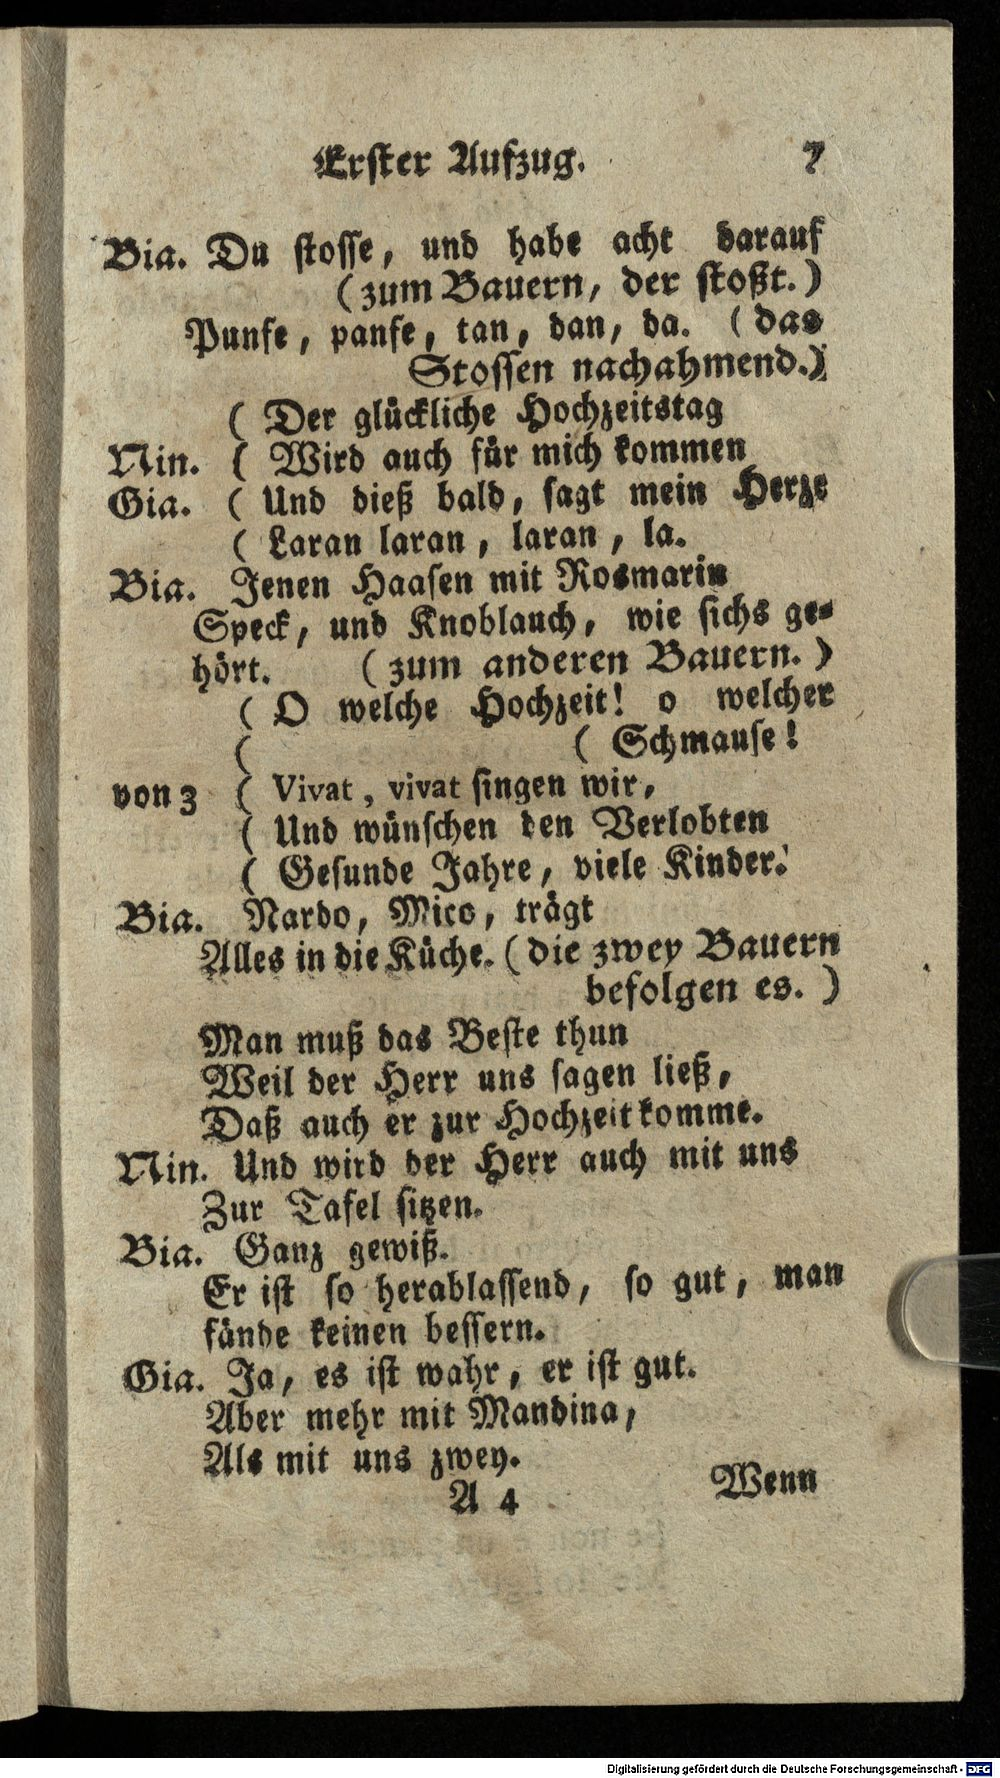 Erster Aufzug. 7
Bia. Du stosse, und habe acht darauf
(zum Bauern, der stoßt.)
Punfe, panfe, tan, dan, da. (das
Stossen nachahmend.)
( Der glückliche Hochzeitstag
Nin. ( Wird auch für mich kommen
Gia. ( Und dieß bald, sagt mein Herze
( Laran laran, laran, la.
Bia. Jenen Haasen mit Rosmarin
Speck, und Knoblauch, wie sichs ge-
hört. (zum anderen Bauern.)
( O welche Hochzeit! o welcher
( ( Schmause!
von 3 ( Vivat, vivat singen wir,
( Und wünschen den Verlobten
( Gesunde Jahre, viele Kinder.
Bia. Nardo, Mico, trägt
Alles in die Küche. (die zwey Bauern
befolgen es.)
Man muß das Beste thun
Weil der Herr uns sagen ließ,
Daß auch er zur Hochzeit komme.
Nin. Und wird der Herr auch mit uns
Zur Tafel sitzen.
Bia. Ganz gewiß.
Er ist so herablassend, so gut, man
fände keinen bessern.
Gia. Ja, es ist wahr, er ist gut.
Aber mehr mit Mandina,
Als mit uns zwey.
A 4 Wenn
Digitalisierung gefördert durch die Deutsche Forschungsgemeinschaft - DFG